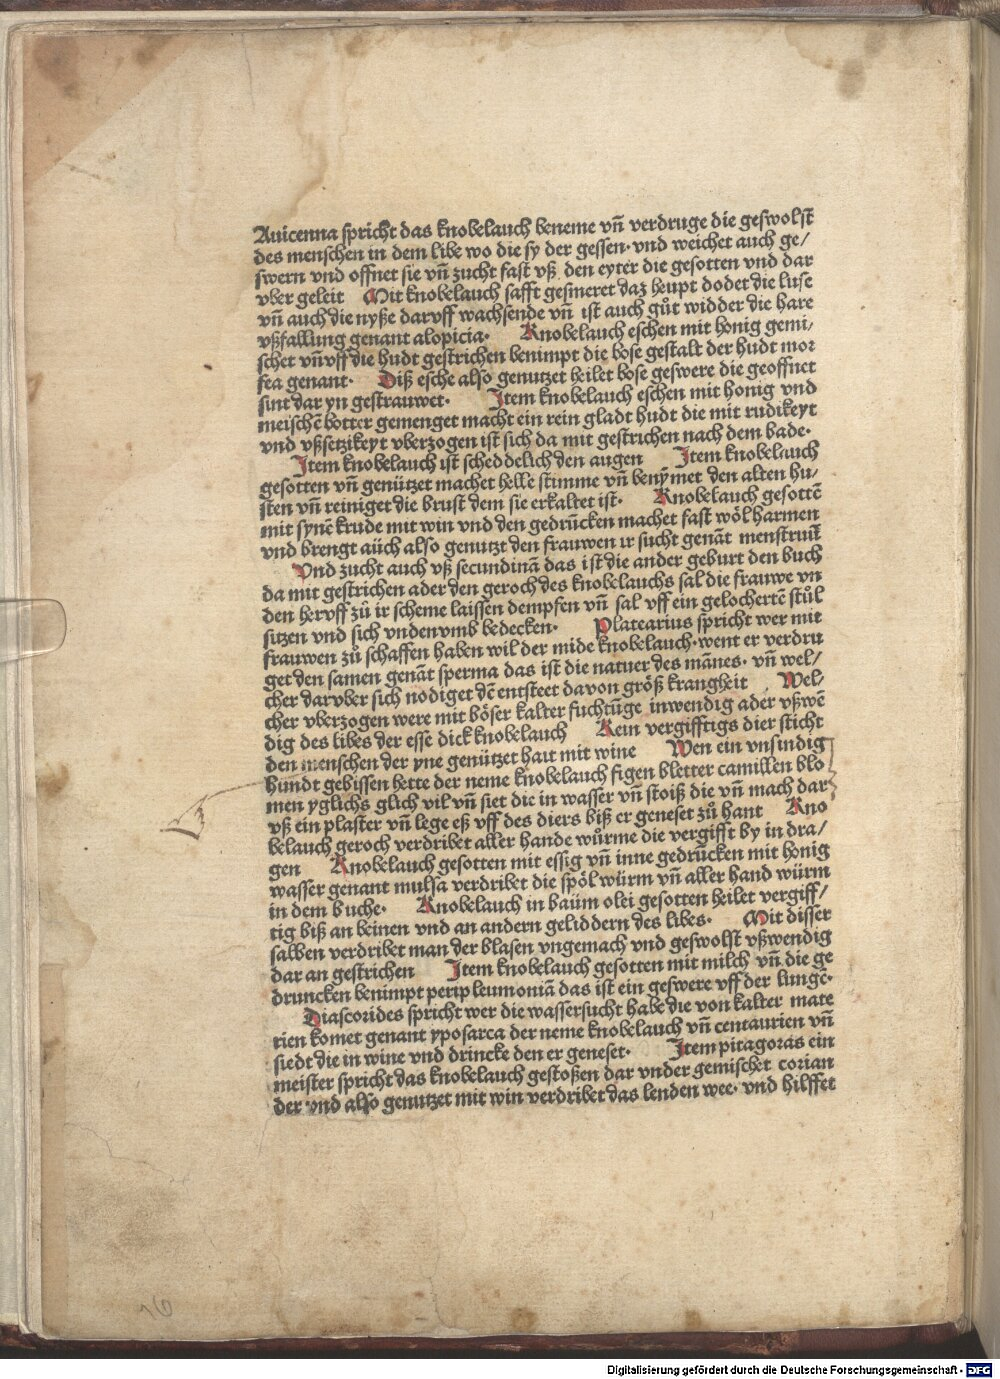 Auicenna spricht das knobelauch beneme vñ verdruge die geswolst
des menschen in dem libe wo die sy der gessen· vnd weichet auch ge/
swern vnd offnet sie vñ zucht fast vß den eyter die gesotten vnd dar
vber geleit Mit knobelauch safft gesmeret daz heupt dodet die luse
vñ auch die nyße daruff wachsende vñ ist auch gůt widder die hare
vßfallung genant alopicia· Knobelauch eschen mit honig gemi/
schet vñ vff die hudt gestrichen benimpt die bose gestalt der hudt mor
fea genant· Diß esche also genutzet heilet bose geswere die geoffnet
sint dar yn gestrauwet· Item knobelauch eschen mit honig vnd
meischē botter gemenget macht ein rein gladt hudt die mit rudikeyt
vnd vßsetzikeyt vberzogen ist sich da mit gestrichen nach dem bade·
Item knobelauch ist scheddelich den augen Item knobelauch
gesotten vñ genützet machet helle stimme vñ benÿmet den alten hu/
sten vñ reiniget die brust dem sie erkaltet ist· Knobelauch gesottē
mit synē krude mit win vnd den gedrücken machet fast wöl harmen
vnd brengt aüch also genutzt den frauwen ir sucht genāt menstruū
Vnd zucht auch vß secundinā das ist die ander geburt den buch
da mit gestrichen ader den geroch des knobelauchs sal die frauwe vn
den heruff zů ir scheme laissen dempfen vñ sal vff ein gelochertē stůl
sitzen vnd sich vnden vmb bedecken· Platearius spricht wer mit
frauwen zů schaffen haben wil der mide knobelauch· went er verdru
get den samen genāt sperma das ist die natuer des mānes· vñ wel/
cher daruber sich nodiget dē entsteet davon größ krangheit Wel/
cher vberzogen were mit böser kalter fuchtüge inwendig ader vßwē
dig des libes der esse dick knobelauch Kein vergifftigs dier sticht
den menschen der yne genützet hait mit wine Wen ein vnsindig
hundt gebissen hette der neme knobelauch figen bletter camillen blo
men yglichs glich vil vñ siet die in wasser vñ stoiß die vñ mach dar
vß ein plaster vñ lege eß vff des diers biß er geneset zů hant Kno
belauch geroch verdribet aller hande wůrme die vergifft by in dra/
gen Knobelauch gesotten mit essig vñ inne gedrücken mit honig
wasser genant mulsa verdribet die spöl würm vñ aller hand würm
in dem buche· Knobelauch in baüm olei gesotten heilet vergiff/
tig biß an beinen vnd an andern geliddern des libes· Mit disser
salben verdribet man der blasen vngemach vnd geswolst vßwendig
dar an gestrichen Item knobelauch gesotten mit milch vñ die ge
druncken benimpt peripleumoniā das ist ein geswere vff der lungē·
Diascorides spricht wer die wassersucht habe die von kalter mate
rien komet genant yposarca der neme knobelauch vñ centaurien vñ
siedt die in wine vnd drincke den er geneset· Item pitagoras ein
meister spricht das knobelauch gestoßen dar vnder gemischet corian
der vnd also genutzet mit win verdribet das lenden wee· vnd hilffet
Digitalisierung gefördert durch die Deutsche Forschungsgemeinschaft - DFG